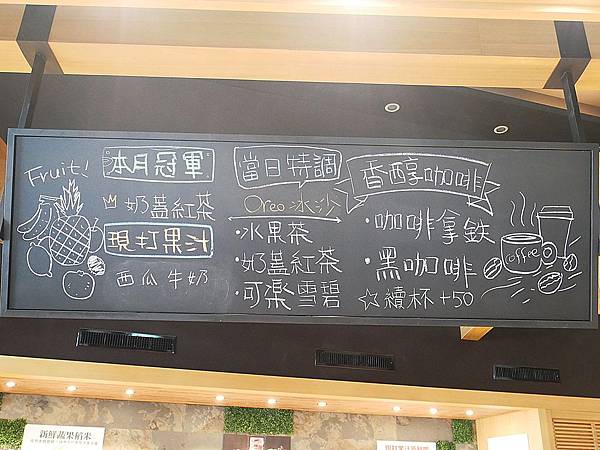 Fruit!
本月冠軍
奶蓋紅茶
現打果汁
西瓜牛奶
當日特調
Oreo冰沙
・水果茶
・奶蓋紅茶
・可樂 雪碧
香醇咖啡
・咖啡拿鉄
・黑咖啡
☆續杯+50
coffee
新鮮蔬果稻米